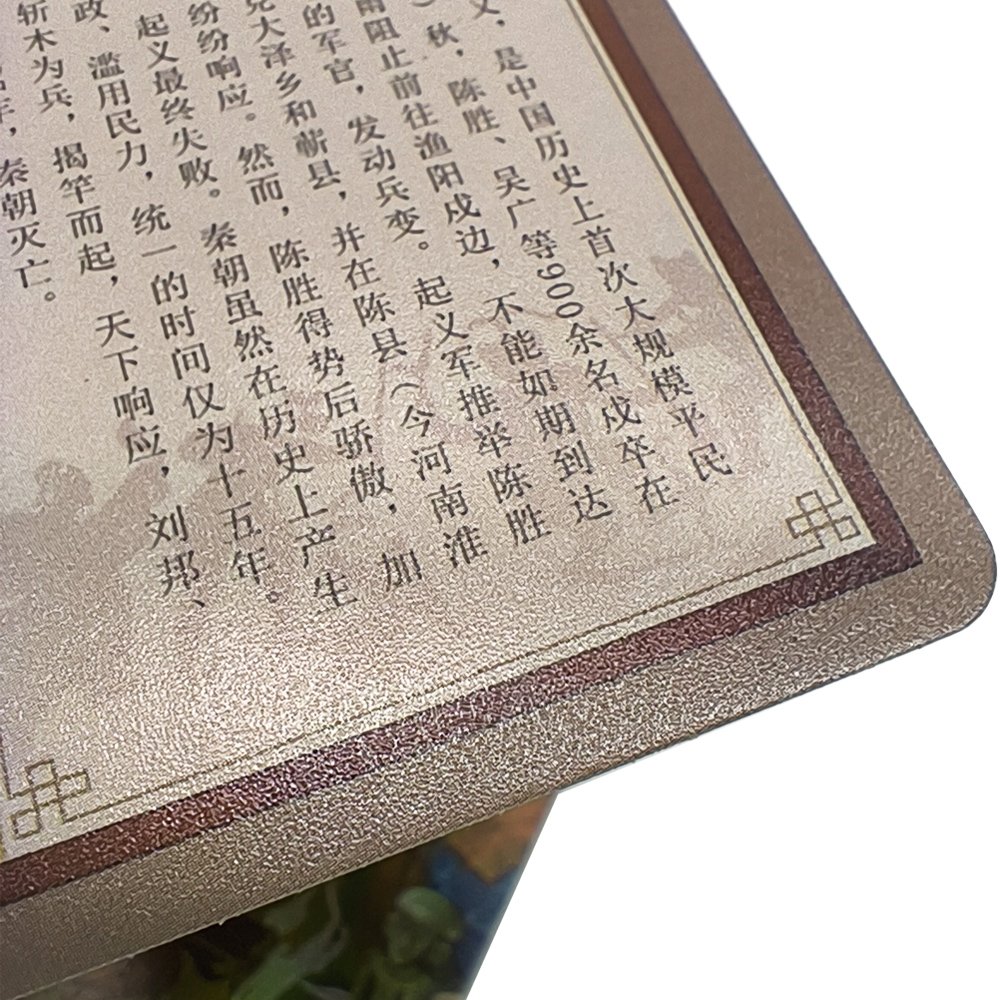 义，是中国历史上首次大规模平民
）秋，陈胜、吴广等900余名戍卒在
雨阻止前往渔阳戍边，不能如期到达
的军官，发动兵变。起义军推举陈胜
克大泽乡和蕲县，并在陈县（今河南淮
纷纷响应。然而，陈胜得势后骄傲，加
起义最终失败。秦朝虽然在历史上产生
政、滥用民力，统一的时间仅为十五年。
斩木为兵，揭竿而起，天下响应，刘邦、
年，秦朝灭亡。